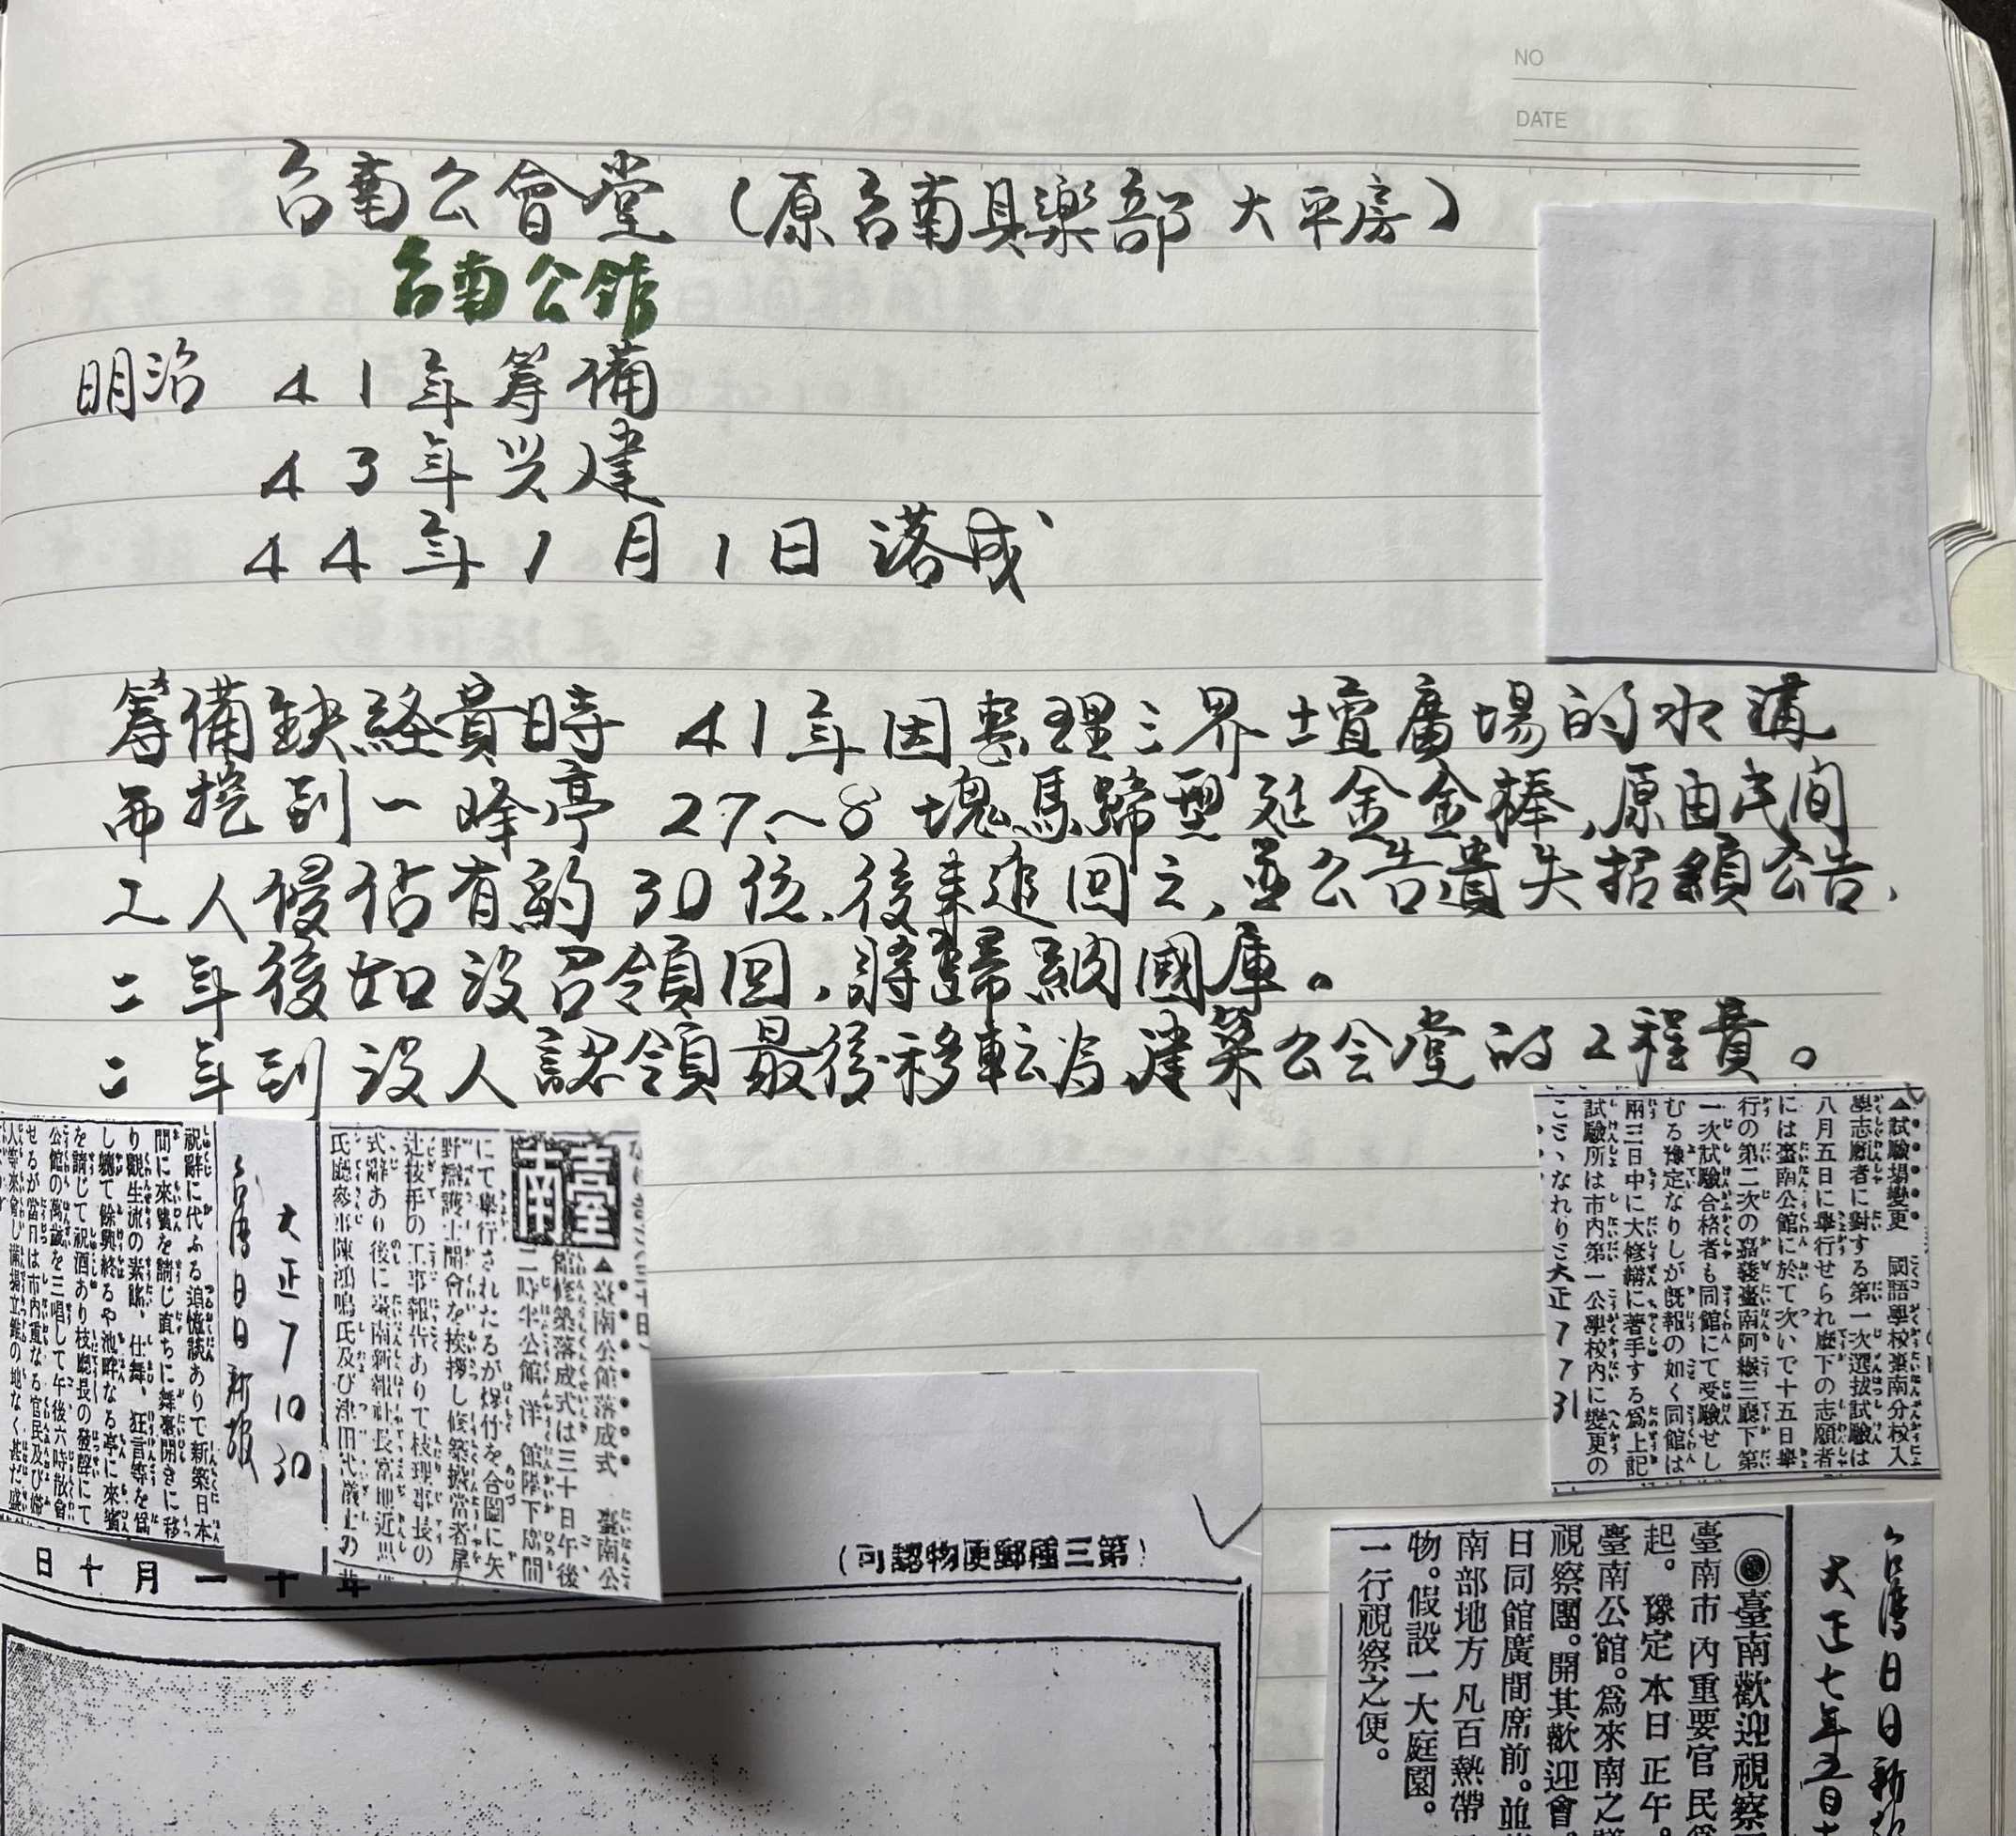 NO
DATE
台南公會堂（原台南具樂部大平房）
台南公館
明治 41年籌備
43年兴建
44年1月1日落成
籌備缺経貴時 41年因整理三界壇廣場的水溝
而挖到一峰亭 27~8塊馬蹄型延金金棒,原由民間
工人侵佔有約30位.後来追回之,並公告遺失招領公告,
二年後如沒召領回,將歸納國庫。
二年到沒人認領最後移転為建築公会堂的工程費。
▲試驗場變更 國語學校臺南分校入
學志願者に對する第一次選拔試驗は
八月五日に舉行せられ廳下の志願者
には臺南公館に於て次いで十五日舉
行の第二次の嘉義臺南阿緱三廳下第
一次試驗合格者も同館にて受驗せし
むる豫定なりしが旣報の如く同館は
兩三日中に大修繕に著手する爲上記
試驗所は市內第一公學校內に變更の
ことゝなれり
大正 7 7 31
臺南
▲臺南公館落成式 臺南公
館修築落成式は三十日午後
二時半公館洋館階下廣間
にて舉行されたるが爆竹を合圖に矢
野辯護士開會を挨拶し修築擔當者
辻技手の工事報告ありて枝理事長の
式辭あり後に臺南新報社長富地近思
氏廳參事陳鴻鳴氏及び津田代議士の
大正 7 10 30
台湾日日新報
祝辭に代ふる追懷談ありて新築日本
間に來賓を請じ直ちに舞臺開きに移
り觀生流の素謠、仕舞、狂言等を爲
し軈て餘興終るや池畔なる亭に來賓
を請じて祝酒あり枝廳長の發聲にて
公館の萬歲を三唱して午後六時散會
せるが當日は市內重なる官民及び婦
人等來會し滿場立錐の地なく甚だ盛
(可認物便郵種三第)
日十月一十年
台湾日日新報
大正七年
◉臺南歡迎視察
臺南市內重要官民
起。豫定本日正午。
臺南公館。爲來南之
視察團。開其歡迎會
日同館廣間席前。並
南部地方凡百熱帶
物。假設一大庭園。
一行視察之便。